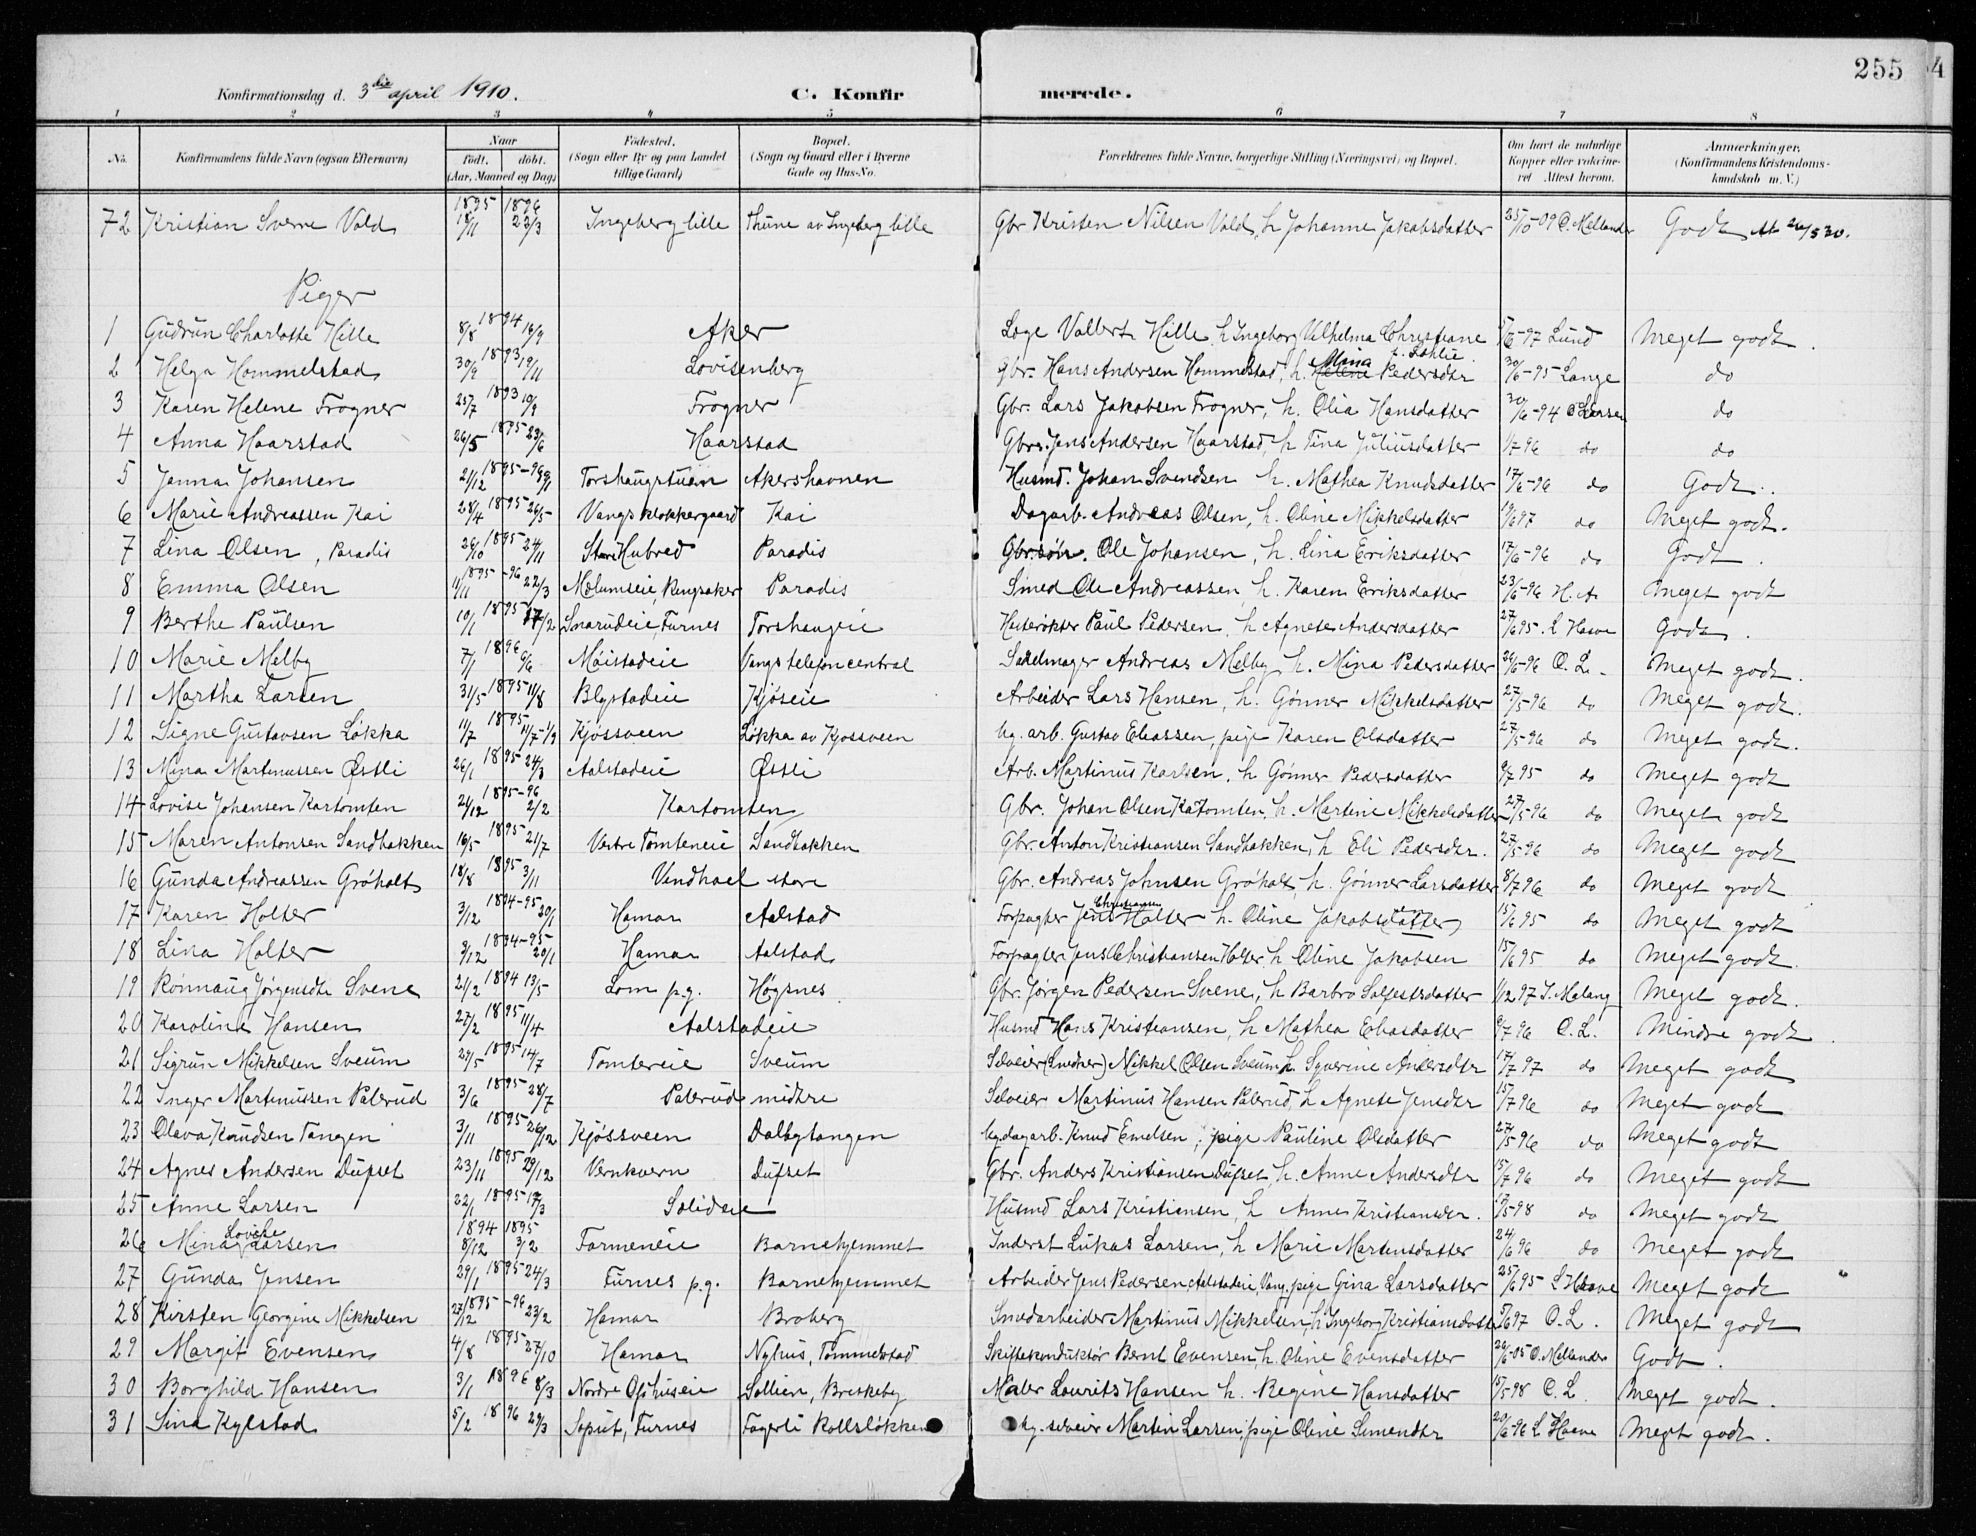 255 4
Konfirmationsdag d. 3die april 1910. C. Konfirmerede.
1 2 3 4 5 6 7 8
No. Konfirmandens fulde Navn (ogsaa Efternavn) Naar født. døbt. (Aar, Maaned og Dag) Fødested. (Sogn eller By og paa Landet tillige Gaard) Bopæl. (Sogn og Gaard eller i Byerne Gade og Hus-No. Forældrenes fulde Navne, borgerlige Stilling (Næringsvei) og Bopæl. Om havt de naturlige Kopper eller vakcineret. Attest herom. Anmærkninger. (Konfirmandens Kristendomskundskab m. V.)
72 Kristian Sverre Vold 1895 18/11 1896 22/3 Ingeberg lille Thune av Ingeberg lille Gbr Kristen Nilsen Vold, h Johanne Jakobsdatter 25/10-09 O. Mellander Godt
Piger
1 Gudrun Charlotte Hille 8/8 1894 16/9 Aker Loge Valbert Hille h Ingeborg Vilhelma Christiane f. Dahlie 97 Lund Meget godt.
2 Helga Hommelstad 30/9 1893 19/11 Lovisenberg Gbr. Hans Andersen Hommelstad, h. Helene Maria Pedersdtr 30/6-95 Lange do
3 Karen Helene Frogner 25/7 1893 10/9 Frogner Gbr. Lars Jakobsen Frogner, h. Olia Hansdatter 30/6-94 O Larsen do
4 Anna Haarstad 26/5 1895 23/6 Haarstad Gbr. Jens Andersen Haarstad, h Tina Juliusdatter 1/7 96 do do
5 Janna Johansen 21/12 1895-96 Torshaugstuen Akershavnen Husmd. Johan Svendsen h. Mathea Knudsdatter 17/6-96 do Godt.
6 Marie Andreassen Kai 28/4 1895 26/5 Vangs klokkergaard Kai Dagarb. Andreas Olsen, h. Oline Mikkelsdatter 97 do Meget godt.
7 Lina Olsen, Paradis 26/10 1895 24/11 Store Hubred Paradis Gbr.søn. Ole Johansen, h. Lina Eriksdatter 17/6-96 do Godt.
8 Emma Olsen 11/11 1895-96 22/3 Melumseie, Ringsaker Paradis Smed Ole Andreassen, h. Karen Eriksdatter 23/6-96 H. A. Meget godt
9 Berthe Paulsen 10/1 1895 17/2 Snarudeie, Furnes Torshaugeie Hesterøkter Paul Pedersen, h Agnete Andersdatter 27/6 95. L Hasve Godt.
10 Marie Melby 7/1 1896 6/6 Møistadeie Vangs telefoncentral Sadelmager Andreas Melby h. Mina Pedersdatter 26/6-96 O. L. Meget godt.
11 Martha Larsen 31/5 1895 11/8 Blystadeie Kjöseie Arbeider Lars Hansen, h. Gönner Mikkelsdatter 27/5-96 do Meget godt.
12 Signe Gustavsen Løkka 11/7 1895 11/7-1/9 Kjössveen Løkka av Kjossveen Ug. arb. Gustav Eliassen, pige Karen Olsdatter 27/5-96 do Meget godt.
13 Mina Martinussen Østli 26/1 1895 24/3 Aalstadeie Østli Arb. Martinus Karlsen, h Gönner Pedersdatter 9/7 95 do Meget godt
14 Lovise Johansen Kartomten 24/12 1895-96 2/2 Kartomten Gbr. Johan Olsen Katomten, h. Martine Mikkelsdatter 27/5-96 do Meget godt
15 Maren Antonsen Sandbakken 16/5 1895 21/7 Vestre Tomteneie Sandbakken Gbr. Anton Kristiansen Sandbakken, h Eli Pedersdtr. 27/5-96 do Meget godt
16 Gunda Andreassen Gröholt 18/8 1895 3/11 Vindhael store Gbr. Andreas Johnsen Gröholt, h. Gönner Larsdatter 8/7 96 do Meget godt
17 Karen Holter 3/12 1894-95 20/1 Hamar Aalstad Forpagter Jens Christiansen Holter h. Oline Jakobsdatter 15/6 95 do Meget godt
18 Lina Holter 3/12 1894-95 20/1 Hamar Aalstad Forpagter Jens Christiansen Holter h Oline Jakobsen 15/6 95 do Meget godt.
19 Rönnaug Jørgensdtr Svene 21/2 1894 13/5 Lom p.g. Høgsnes Gbr. Jörgen Pedersen Svene, h Barbro Solfestsdatter 1/12 97 S. Malang Meget godt.
20 Karoline Hansen 27/2 1895 11/4 Aalstadeie Husmd Hans Kristiansen, h Mathea Eliasdatter 9/7 96 O. L. Mindre godt.
21 Sigrun Mikkelsen Sveum 27/5 1895 14/7 Tomtereie Sveum Selveier (Snedker) Mikkel Olsen Sveum, h. Syverine Andersdtr 17/7 97 do Meget godt
22 Inger Martinussen Palerud 3/6 1895 28/7 Palerud midtre Selveier Martinus Hansen Palerud, h Agnete Jensdtr 15/7 96 do Meget godt
23 Olava Knudsen Tangen 3/11 1895 26/12 Kjössveen Dalbytangen Ug. dagarb. Knud Emelsen, pige Pauline Olsdatter 27/5 96 do Meget godt
24 Agnes Andersen Dufset 23/11 1895 29/12 Vernkvern Dufset Gbr. Anders Kristiansen Dufset, h. Anne Andersdtr 15/7 96 do Meget godt
25 Anne Larsen 22/1 1895 17/3 Solideie Husmd Lars Kristiansen, h Anne Kristiansdtr. 18/5-98 do Meget godt
26 Mina Lovise Larsen 1894 8/12 1895 3/2 Farmeneie Barnehjemmet Inderst Lukas Larsen, h Marie Martinsdatter 24/6 96 do Meget godt
27 Gunda Jensen 29/1 1895 24/3 Furnes p.g. Barnehjemmet Arbeider Jens Pedersen, Aalstadeie, Vang, pige Gina Larsdatter 25/6 95 L Hasve Meget godt
28 Kirsten Georgine Mikkelsen 27/12 1895-96 23/2 Hamar Broberg Smedarbeider Martinus Mikkelsen, h Ingeborg Kristiansdatter 5/6 97 O. L. Meget godt
29 Margit Evensen 4/8 1895 27/10 Hamar Nyhus, Tommelstad Skiftekonduktör Bernt Evensen, h. Oline Evensdatter 26/6-05 O. Mellander Godt.
30 Borghild Hansen 3/1 1896 8/3 Nordre Ofshuseie Sollien, Briskeby Maler Laurits Hansen h. Regine Hansdatter 15/5 98 O. L. Meget godt.
31 Lina Kylstad 5/2 1896 29/3 Soput, Furnes Fagerli Kollsløkken Ug. selveier Martin Larsen, pige Oline Simendtr 20/6-96 L Hasve Meget godt.